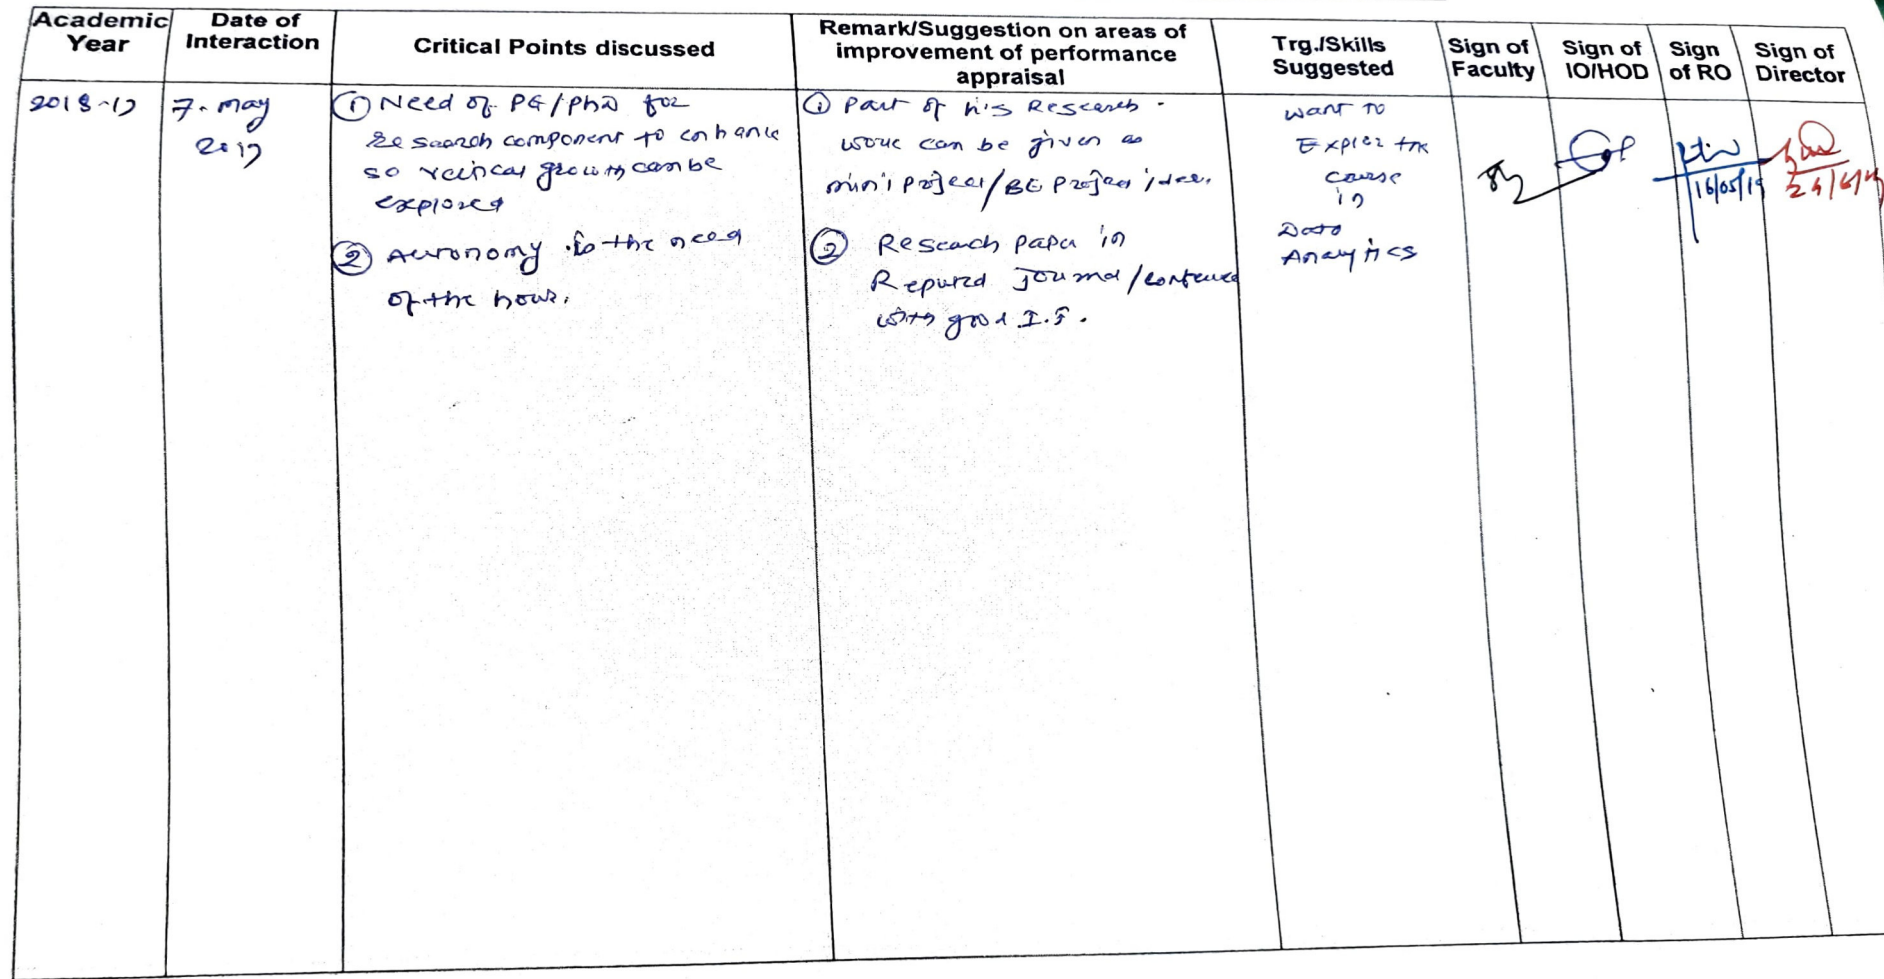 Academic Year
Date of Interaction
Critical Points discussed
Remark/Suggestion on areas of improvement of performance appraisal
Trg./Skills Suggested
Sign of Faculty
Sign of IO/HOD
Sign of RO
Sign of Director
2018-19
7-May
2019
① Need of PG/PhD for
Research component to enhance
so vertical growth can be
explored
② Autonomy is the need
of the hour.
① Part of his Research
work can be given as
mini Project/BE Project idea.
② Research paper in
Reputed Journal/conference
with good I.F.
want to
Explor the
course
in
Data
Analytics
16/05/19